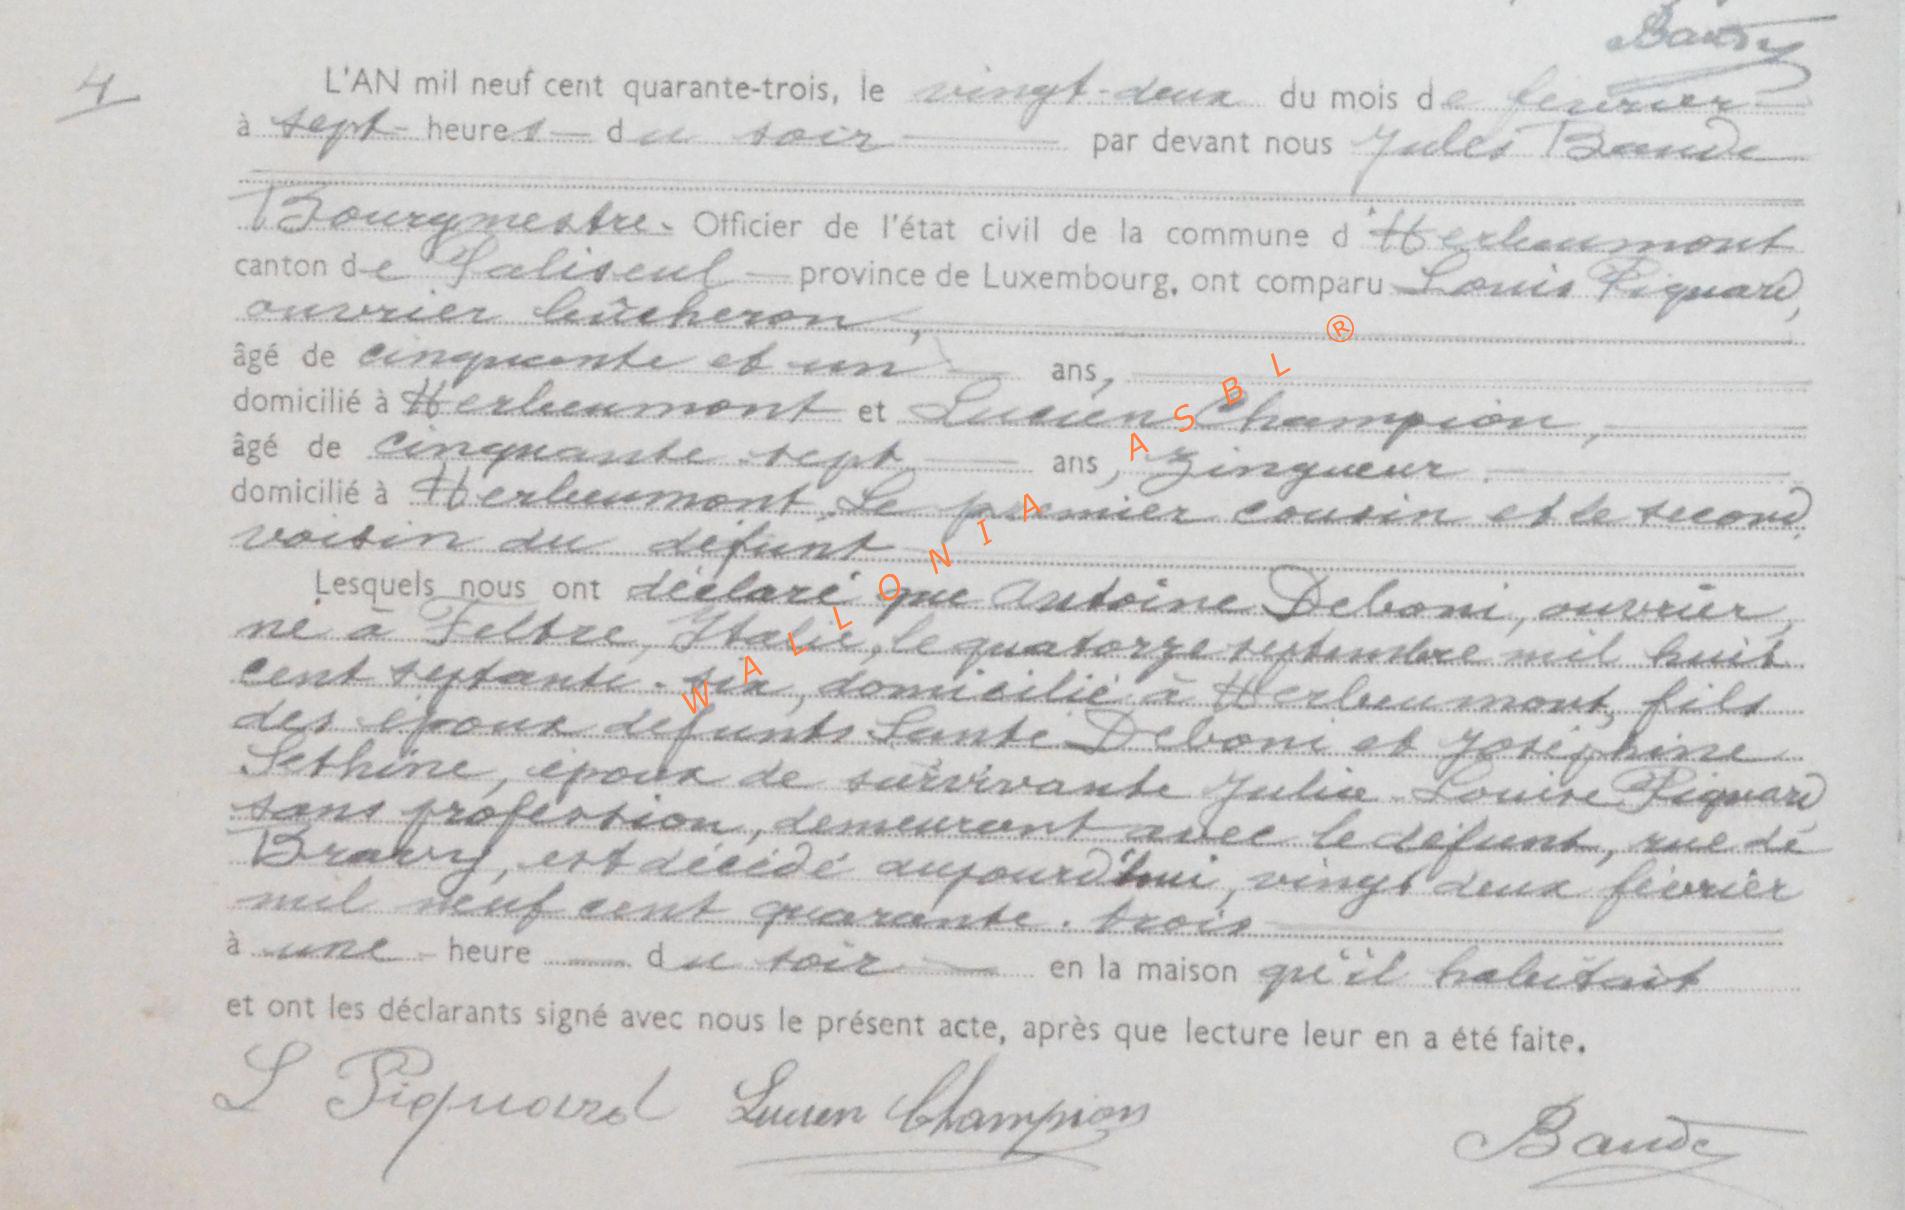 Baudé
4
L'AN mil neuf cent quarante-trois, le vingt-deux du mois de février
à sept heures du soir par devant nous Jules Baudé
Bourgmestre. Officier de l'état civil de la commune d'Herbeumont
canton de Paliseul province de Luxembourg, ont comparu Louis Piquard,
ouvrier bûcheron,
âgé de cinquante et un ans,
domicilié à Herbeumont et Lucien Champion,
âgé de cinquante sept ans, zingueur.
domicilié à Herbeumont. Le premier cousin et le second
voisin du défunt
Lesquels nous ont déclaré que Antoine Deboni, ouvrier,
né à Feltre, Italie, le quatorze septembre mil huit
cent septante-six, domicilié à Herbeumont, fils
des époux défunts Santé Deboni et Joséphine
Sethine, époux de survivante Julie Louise Piquard
sans profession, demeurant avec le défunt, rue de
Bravy, est décédé aujourd'hui, vingt deux février
mil neuf cent quarante-trois
à une heure du soir en la maison qu'il habitait
et ont les déclarants signé avec nous le présent acte, après que lecture leur en a été faite.
L Piquard Lucien Champion Baudé
WALLONIA ASBL ®